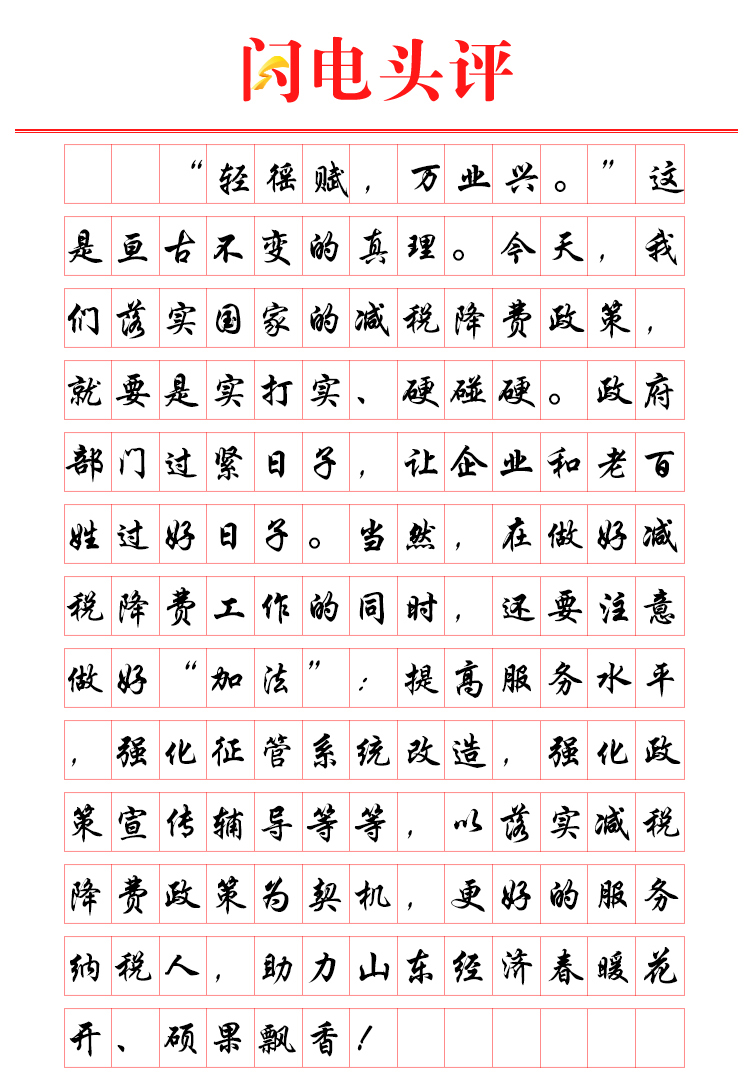 闪电头评
“轻徭赋，万业兴。”这
是亘古不变的真理。今天，我
们落实国家的减税降费政策，
就要是实打实、硬碰硬。政府
部门过紧日子，让企业和老百
姓过好日子。当然，在做好减
税降费工作的同时，还要注意
做好“加法”：提高服务水平
，强化征管系统改造，强化政
策宣传辅导等等，以落实减税
降费政策为契机，更好的服务
纳税人，助力山东经济春暖花
开、硕果飘香！